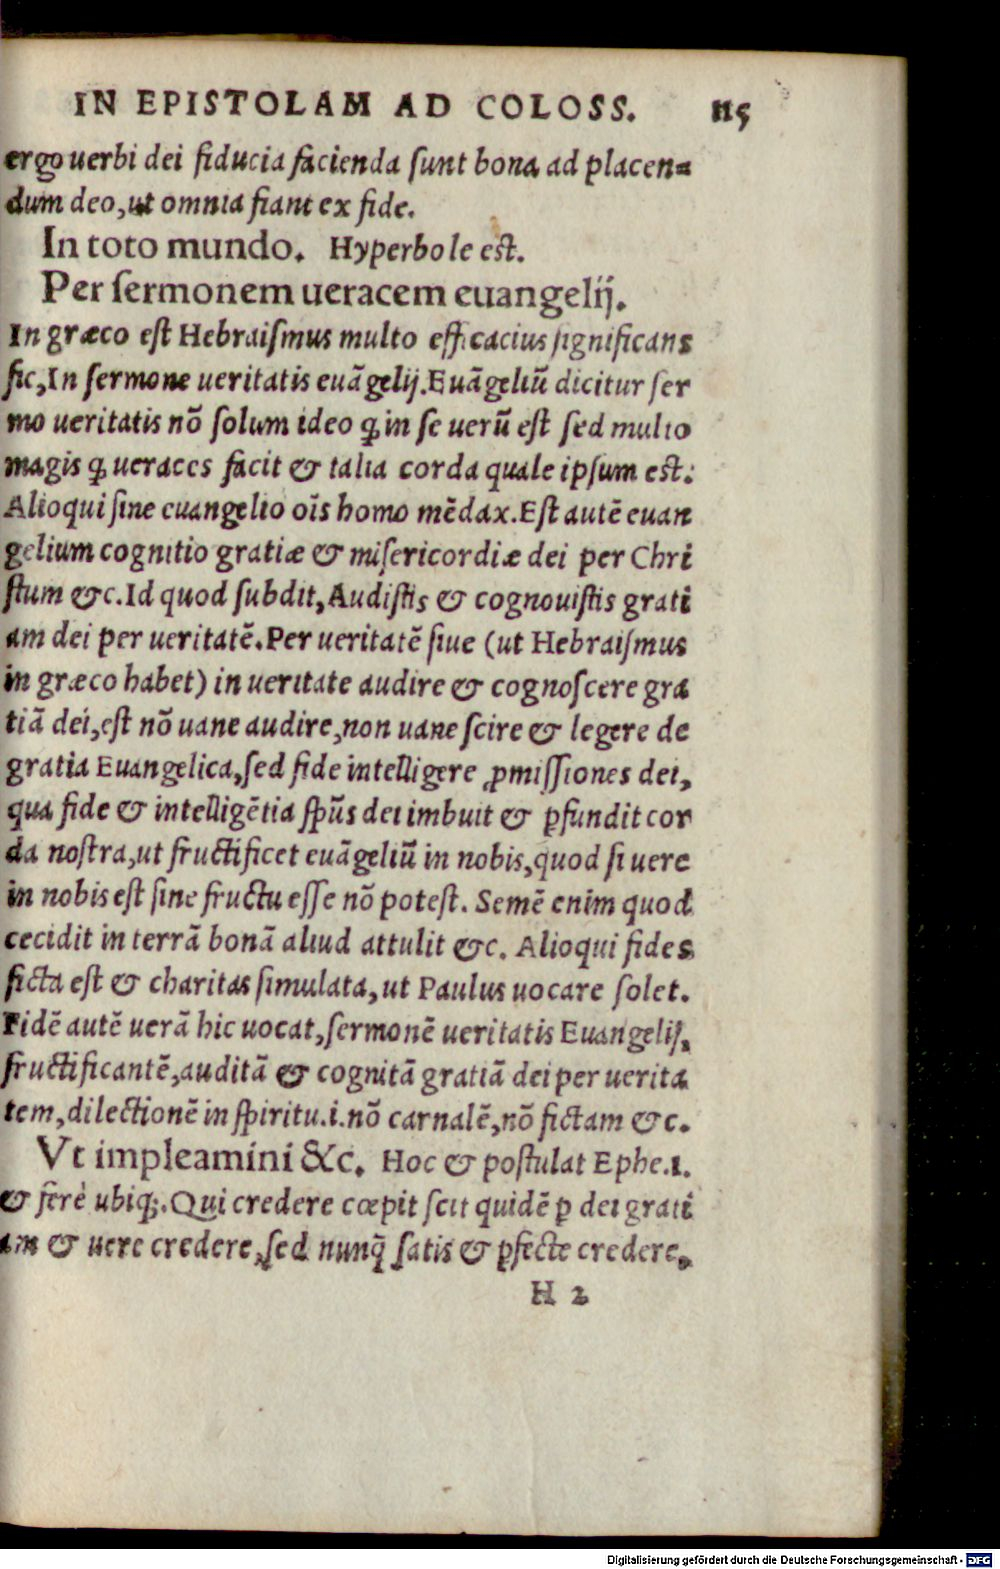 IN EPISTOLAM AD COLOSS. 115
ergo uerbi dei fiducia facienda ſunt bona ad placen⸗
dum deo, ut omnia fiant ex fide.
In toto mundo. Hyperbole eſt.
Per ſermonem ueracem euangelij.
In græco eſt Hebraiſmus multo efficacius ſignificans
ſic, In ſermone ueritatis euãgelij. Euãgeliũ dicitur ſer
mo ueritatis nõ ſolum ideo ꝙ in ſe uerũ eſt ſed multo
magis ꝙ ueraces facit & talia corda quale ipſum eſt:
Alioqui ſine euangelio oĩs homo mẽdax. Eſt autẽ euan
gelium cognitio gratiæ & miſericordiæ dei per Chri
ſtum &c. Id quod ſubdit, Audiſtis & cognouiſtis grati
am dei per ueritatẽ. Per ueritatẽ ſiue (ut Hebraiſmus
in græco habet) in ueritate audire & cognoſcere gra
tiã dei, eſt nõ uane audire, non uane ſcire & legere de
gratia Euangelica, ſed fide intelligere ꝓmiſſiones dei,
qua fide & intelligẽtia ſpũs dei imbuit & ꝑfundit cor
da noſtra, ut fructificet euãgeliũ in nobis, quod ſi uere
in nobis eſt ſine fructu eſſe nõ poteſt. Semẽ enim quod
cecidit in terrã bonã aliud attulit &c. Alioqui fides
ficta eſt & charitas ſimulata, ut Paulus uocare ſolet.
Fidẽ autẽ uerã hic uocat, ſermonẽ ueritatis Euangelij,
fructificantẽ, auditã & cognitã gratiã dei per uerita
tem, dilectionẽ in ſpiritu .i. nõ carnalẽ, nõ fictam &c.
Vt impleamini &c. Hoc & poſtulat Ephe. 1.
& ferè ubiqꝫ. Qui credere cœpit ſcit quidẽ ꝑ dei grati
am & uere credere, ſed nunq̃ ſatis & ꝑfecte credere,
H 2
Digitalisierung gefördert durch die Deutsche Forschungsgemeinschaft - DFG